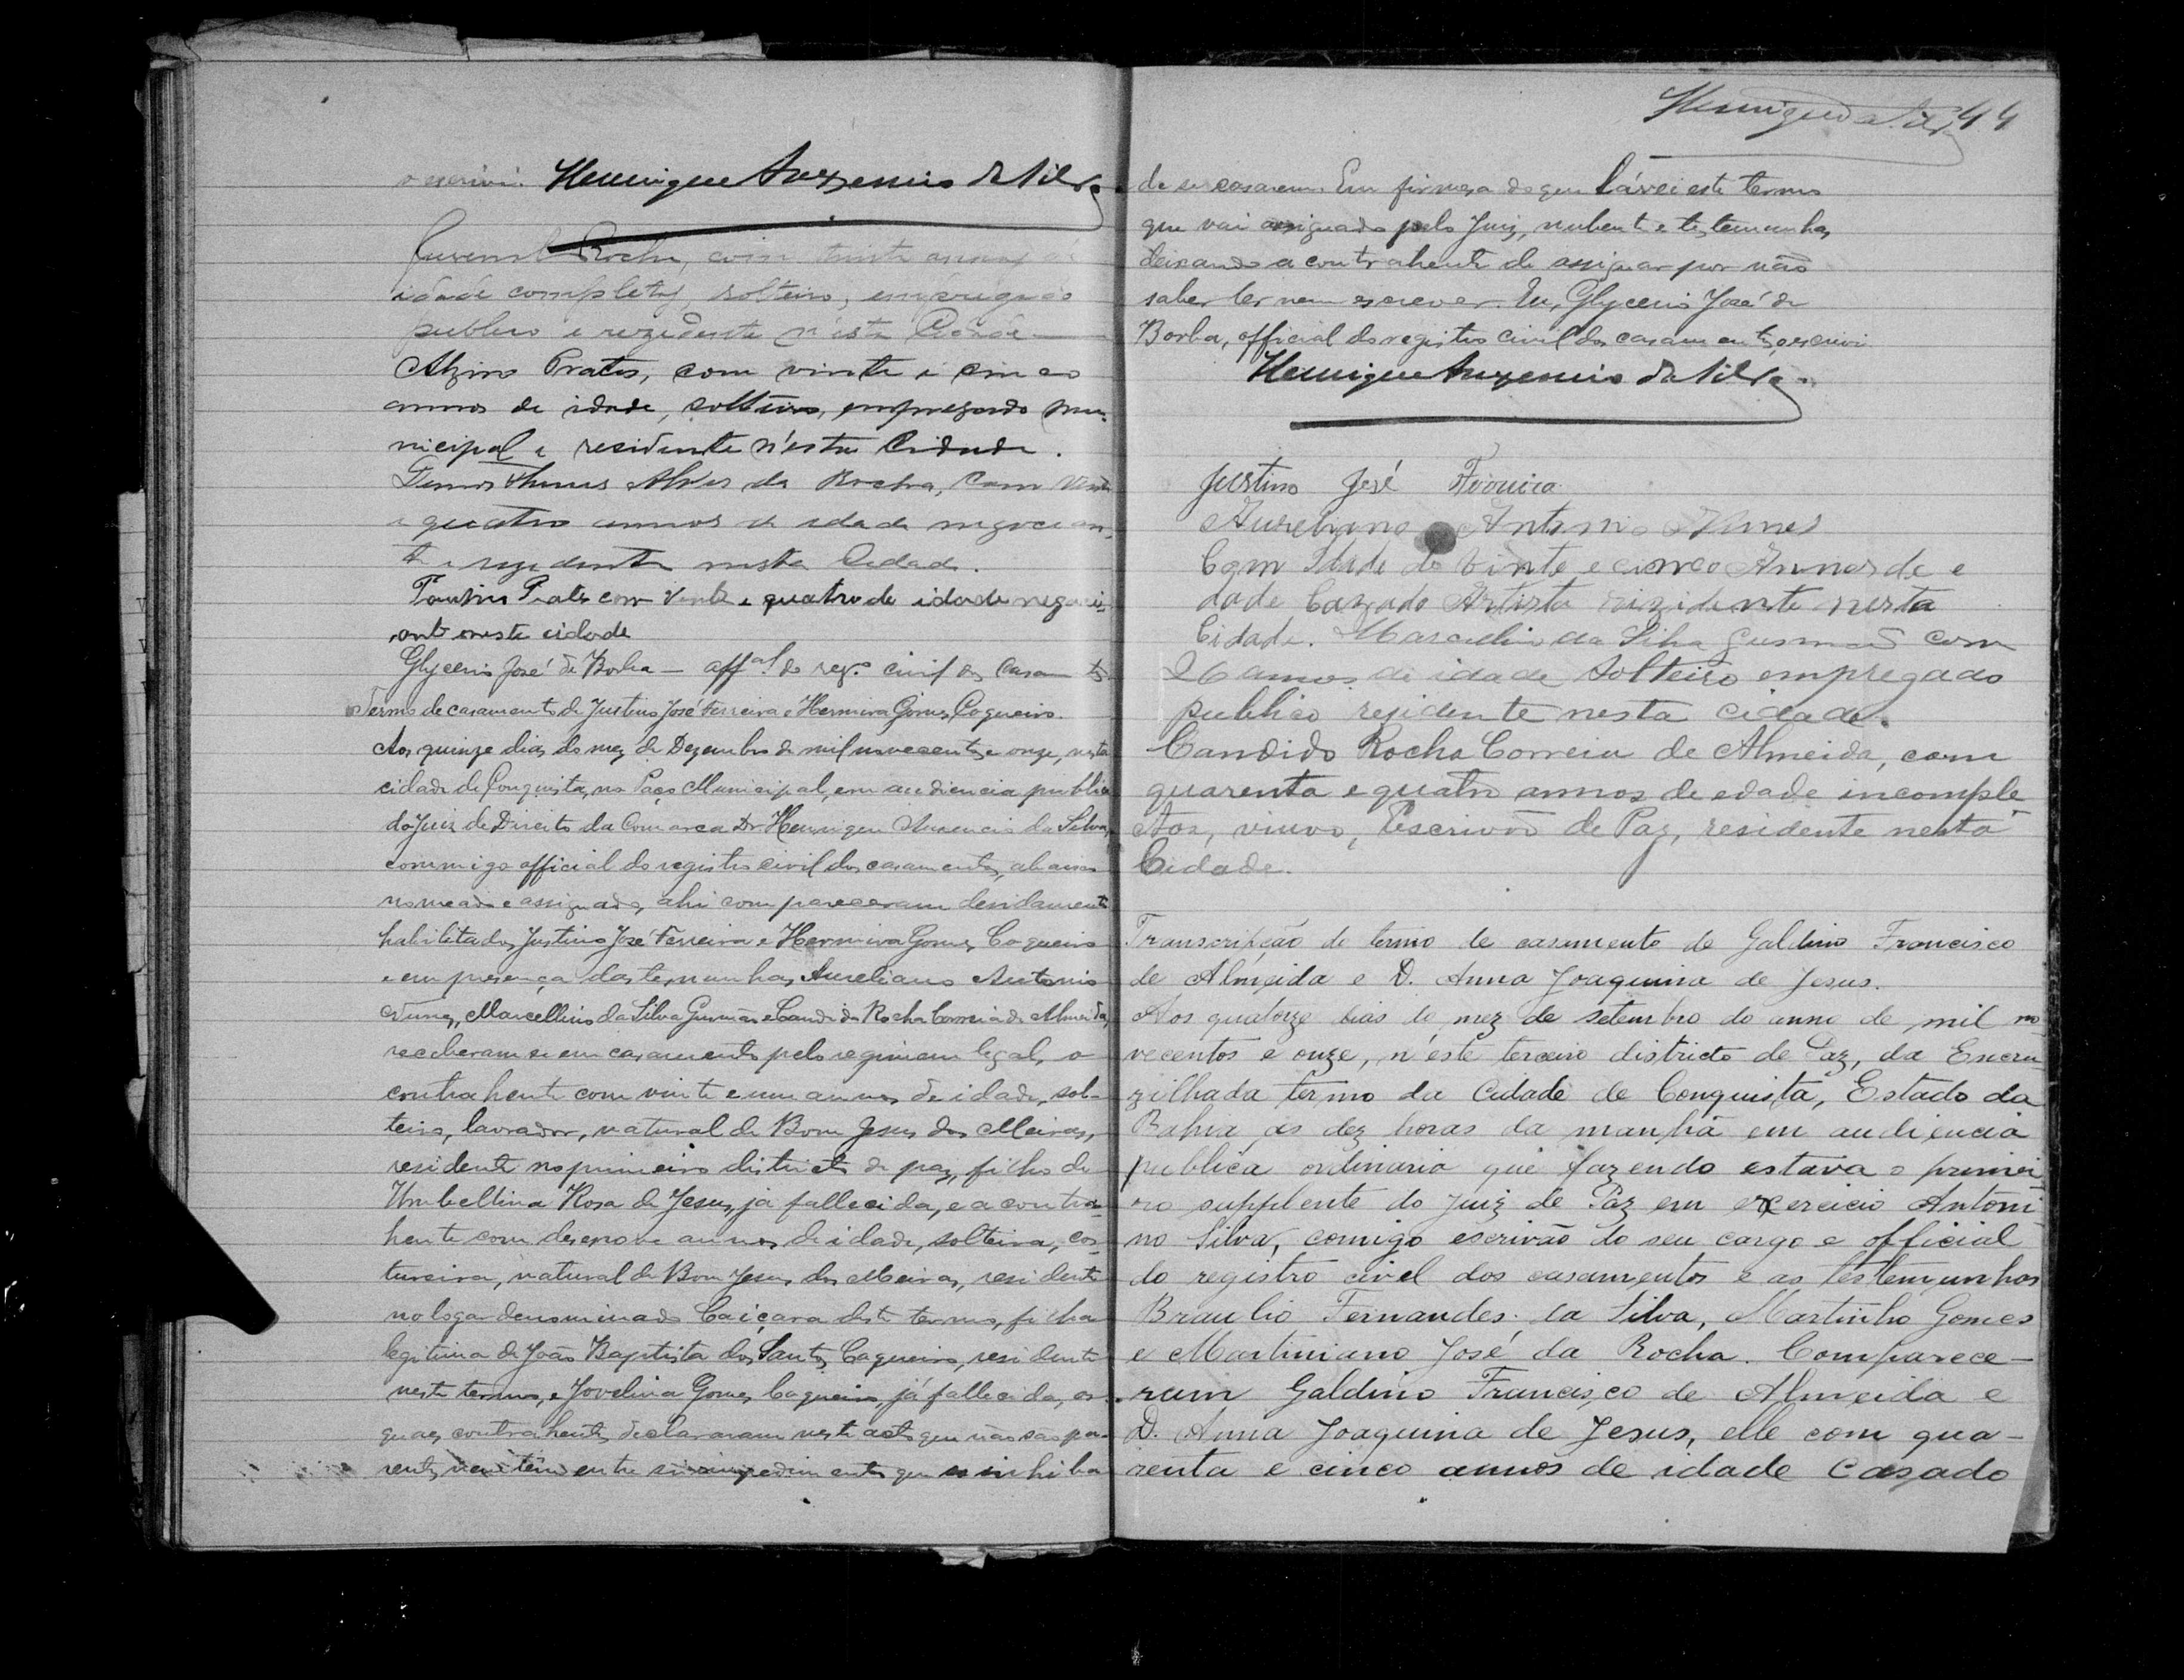 o escrivi. Henrique Auxencio da Silva
Juvenal Rocha, com trinta annos de
idade completos, solteiro, empregado
publico e rezidente n'esta Cidade
Alziro Prates, com vinte e cinco
annos de idade, solteiro, empregado mu-
nicipal e residente n'esta Cidade.
Demosthenes Alves da Rocha, com vinte
e quatro annos de idade negocian-
te e rezidente nesta Cidade.
Prates com vinte e quatro de idade negoci-
ante nesta cidade
Glycerio José de Borba — offal. do rego. civil dos casamtos
Termo de casamento de Justino José Ferreira e Hermina Gomes Coqueiro.
Aos quinze dias do mez de Dezembro de mil novecentos e onze, nesta
cidade de Conquista, no Paço Municipal, em audiencia publica
do Juiz de Direito da Comarca Dr Henrique Auxencio da Silva,
commigo official do registro civil dos casamentos, abaixo
nomeado e assignado, ahi compareceram devidamente
habilitados, Justino José Ferreira e Hermina Gomes Coqueiro
e em presença das temunhas, Aureliano Antonio
Nunes, Marcellino da Silva Gusmão e Candido Rocha Correia de Almeida,
receberam-se em casamento pelo regimem legal, o
contrahente com vinte e um annos de idade, sol-
teiro, lavrador, natural de Bom Jesus dos Meiras,
residente no primeiro districto de paz, filho de
Umbellina Rosa de Jesus, já fallecida, e a contra-
hente com desenove annos de idade, solteira, cos-
tureira, natural de Bom Jesus dos Meiras, residente
no logar denominado Caiçara deste termo, filha
legitima de João Baptista dos Santos Coqueiro, residente
neste termo, e Jovelina Gomes Coqueiro, já fallecida, os
quaes contrahentes declararam neste acto que não são pa-
rentes nem têm entre si impedimentos que os inhiba
Henrique da Silva 44
de se casarem. Em firmeza do que lávrei este termo
que vai assignado pelo Juiz, nubente e testemunhas,
deixando a contrahente de assignar por não
saber ler nem escrever. Eu, Glycerio José de
Borba, official do registro civil dos casamentos, o escrivi
Henrique Auxencio da Silva.
Justino José Firreira
Aureliyano Antonio Nunes
Com Idade de Vinte e cinco Annos de e
dade Cazado Artista rizidente nesta
Cidade. Marcellino da Silva Gusmão com
26 annos de idade solteiro empregado
publico rezidente nesta cidade.
Candido Rocha Correia de Almeida, com
quarenta e quatro annos de edade incomple
tos, viuvo, Escrivão de Paz, residente nesta
Cidade.
Transcripção do termo de casamento de Galdino Francisco
de Almeida e D. Anna Joaquina de Jesus.
Aos quatorze dias do mez de setembro do anno de mil no
vecentos e onze, n'este terceiro districto de Paz, da Encru-
zilhada termo da Cidade de Conquista, Estado da
Bahia, ás dez horas da manhã em audiencia
publica ordinaria que fazendo estava o primei-
ro supplente do Juiz de Paz em exercicio Antoni-
no Silva, comigo escrivão do seu cargo e official
do registro civel dos casamentos e as testemunhas
Braulio Fernandes da Silva, Martinho Gomes
e Martiniano José da Rocha. Comparece-
ram Galdino Francisco de Almeida e
D. Anna Joaquina de Jesus, elle com qua-
renta e cinco annos de idade casado